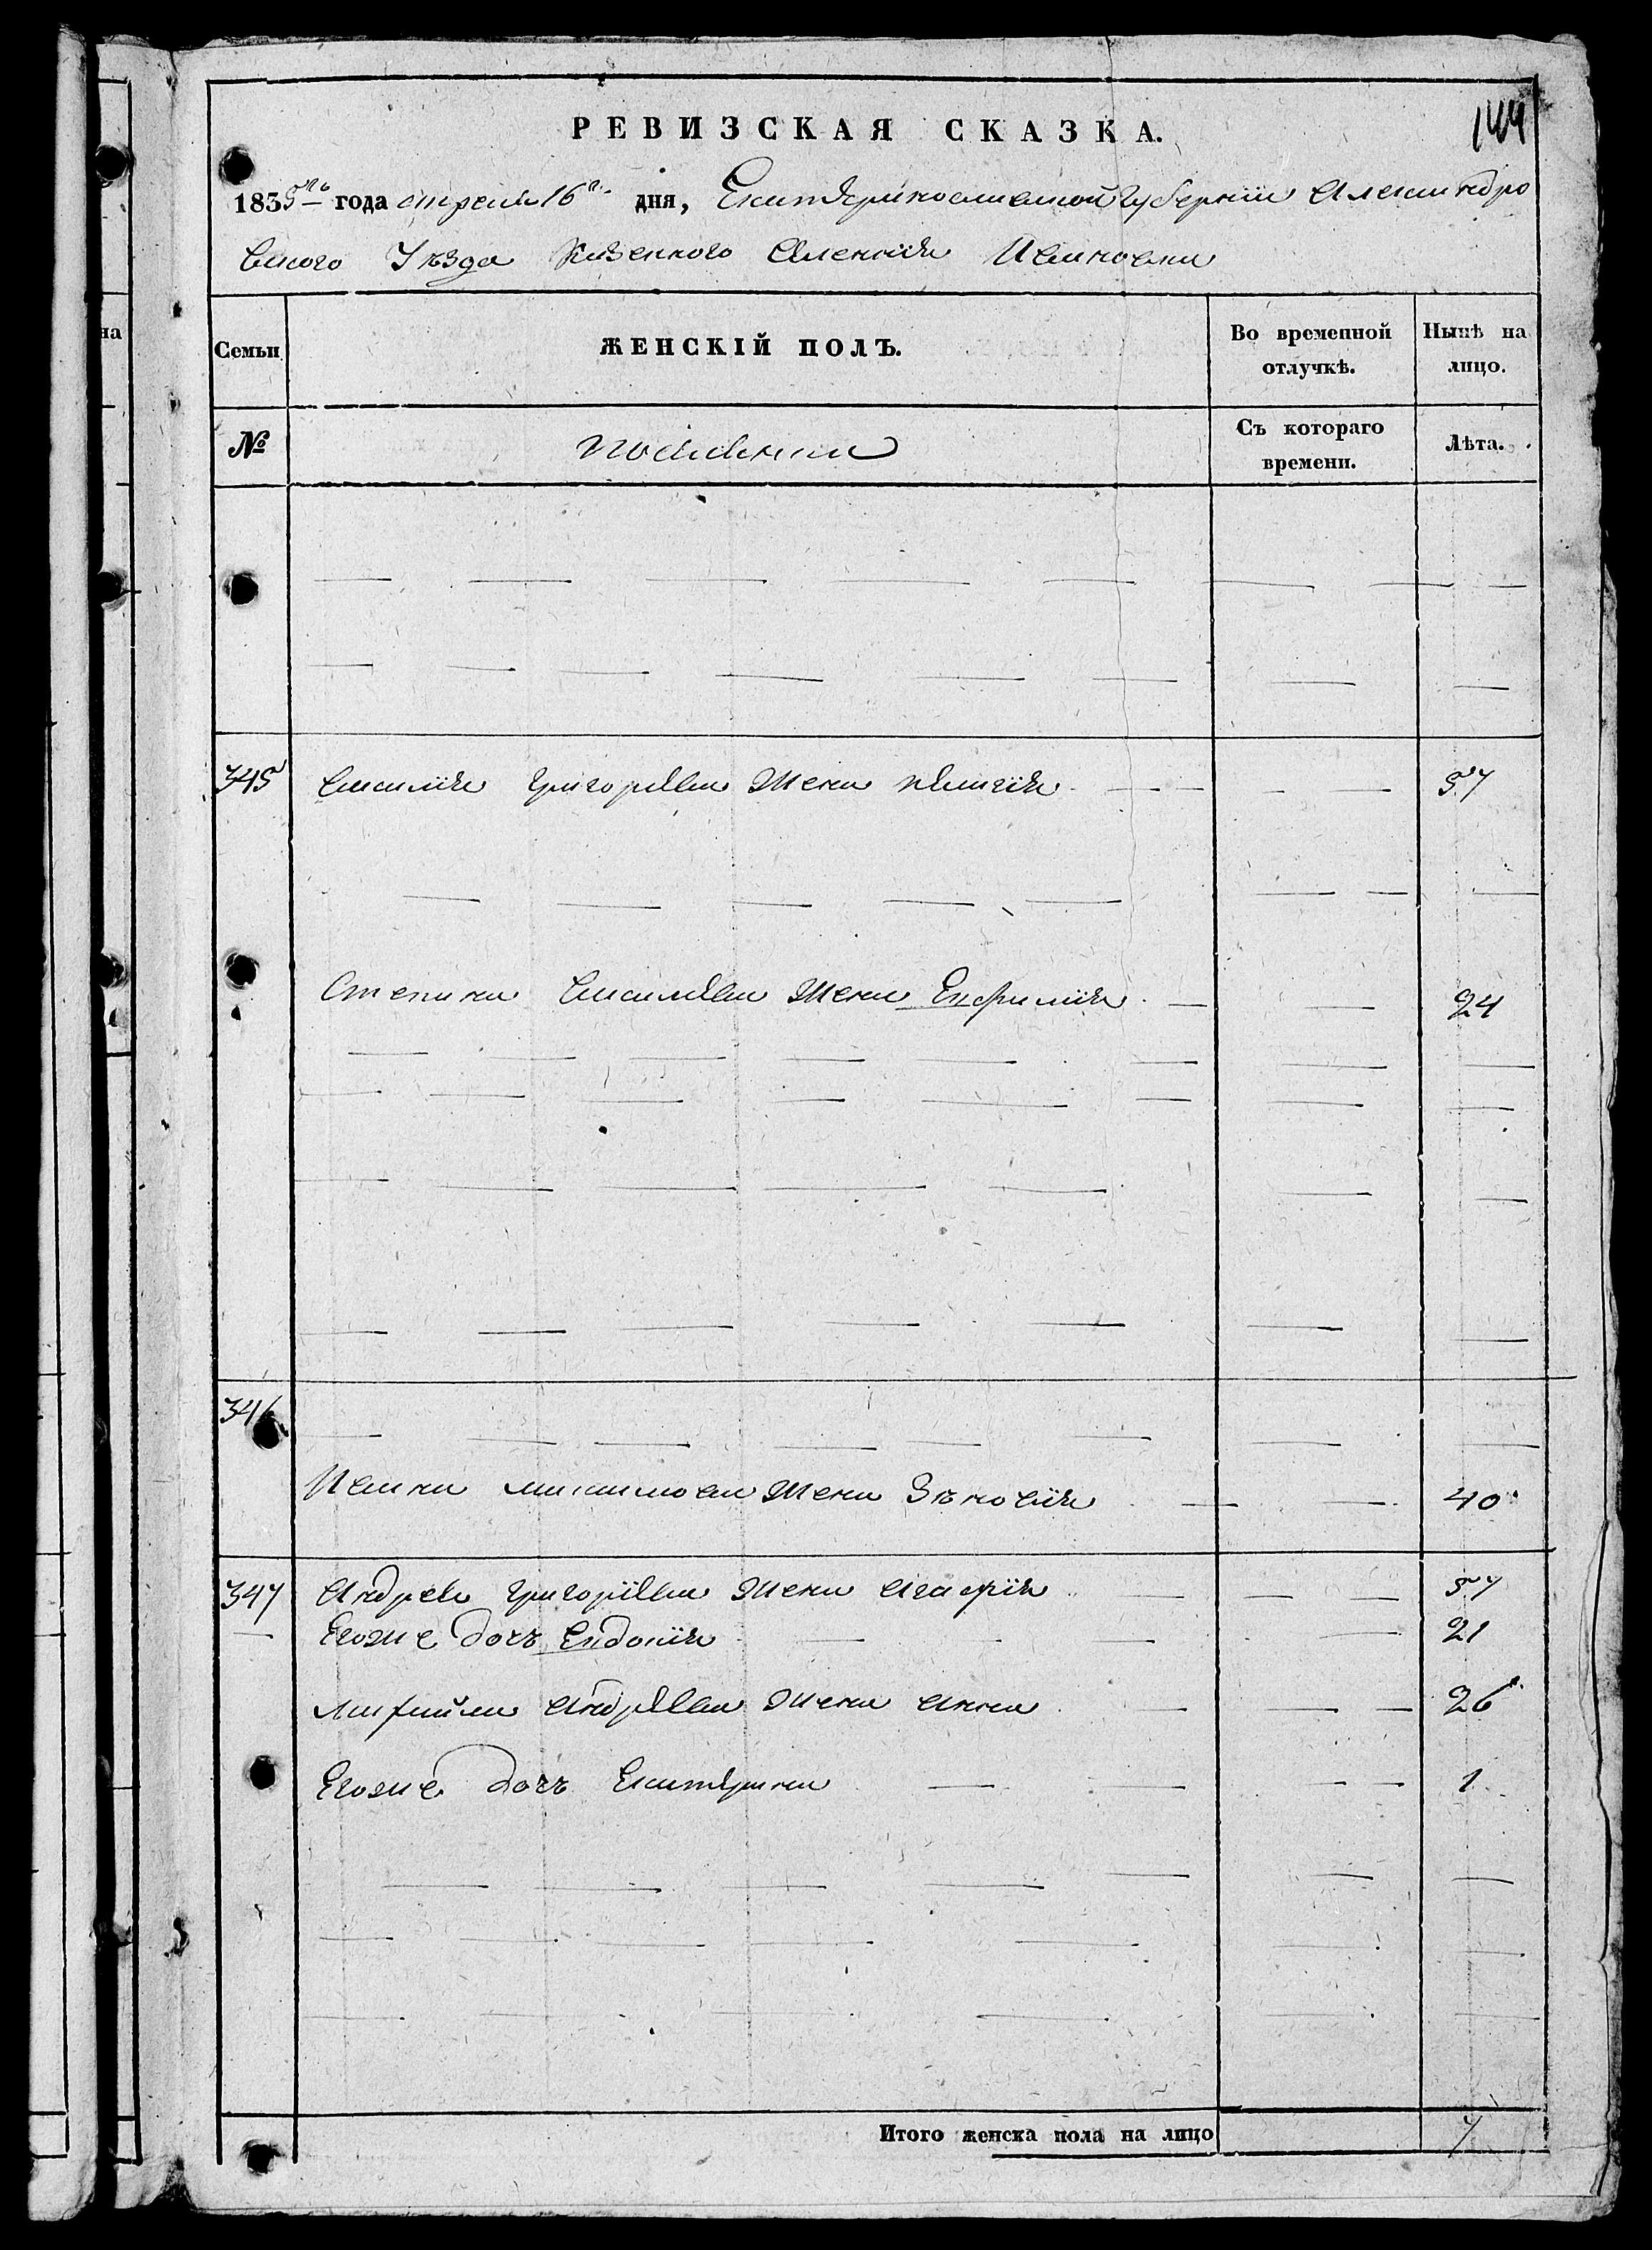 144
РЕВИЗСКАЯ СКАЗКА.
1835го года апреля 16го дня, Екатеринославской губернии Александро
вского Уѣзда Казенного Селения Ивановки
на
Семьи
ЖЕНСКІЙ ПОЛЪ.
Во временной отлучкѣ.
Нынѣ на лицо.
№
Съ котораго времени.
Лѣта.
345 Василия Григорьева жена Пелагия 57
Степана Васильева жена Ефимия 24
346
Ивана Максимова жена Зѣновия 40
347 Андрея Григорьева жена Агафия 57
Егоже дочь Евдокия 21
Михайла Андреева жена Анна 26
Егоже дочь Екатерина 1
Итого женска пола на лицо 7